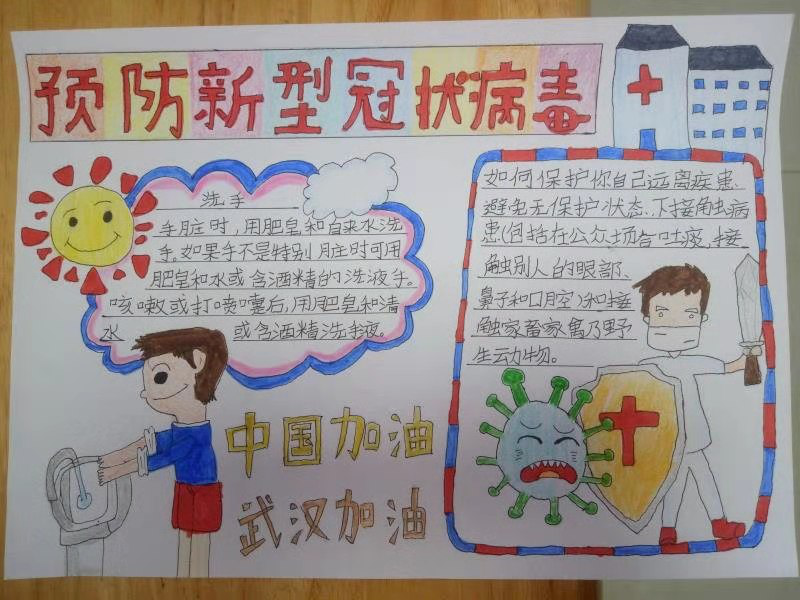 预防新型冠状病毒
洗手
手脏时,用肥皂和自来水洗
手。如果手不是特别脏时可用
肥皂和水或含酒精的洗液手。
咳嗽或打喷嚏后,用肥皂和清
水 或含酒精洗手液。
中国加油
武汉加油
如何保护你自己远离疾患、
避免无保护状态、下接触病
患(包括在公众场合吐痰,接
触别人的眼部、
鼻子和口腔)和接
触家畜家禽乃野
生动物。